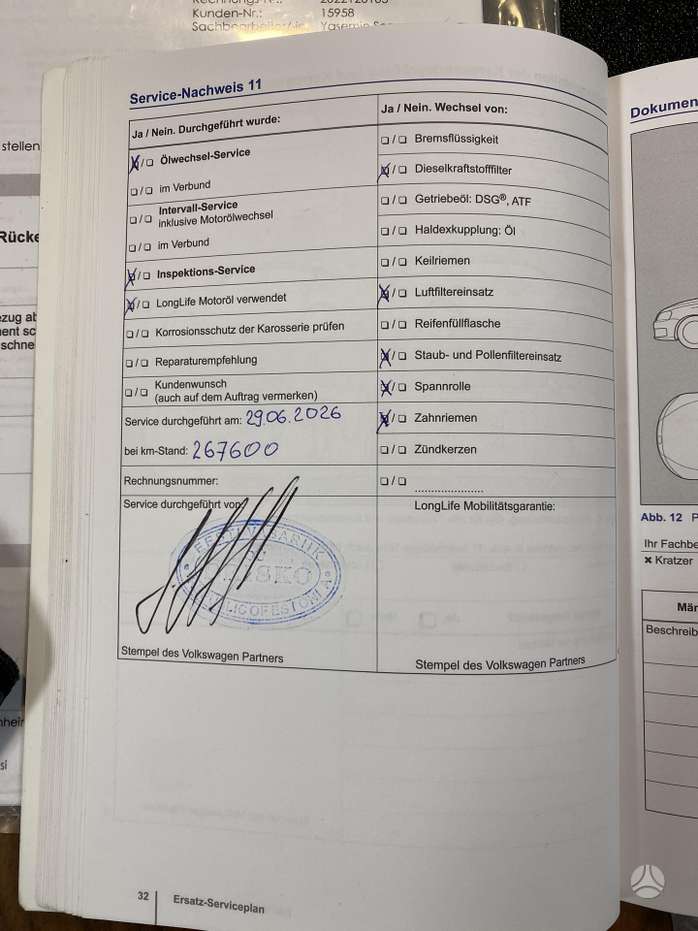 Kunden-Nr.: 15958
stellen
Rücke
Service-Nachweis 11
Ja / Nein. Durchgeführt wurde:
Ölwechsel-Service
im Verbund
Intervall-Service
inklusive Motorölwechsel
im Verbund
Inspektions-Service
LongLife Motoröl verwendet
Korrosionsschutz der Karosserie prüfen
Reparaturempfehlung
Kundenwunsch
(auch auf dem Auftrag vermerken)
Service durchgeführt am: 29.06.2026
bei km-Stand: 267600
Rechnungsnummer:
Service durchgeführt von
Stempel des Volkswagen Partners
Ja / Nein. Wechsel von:
Bremsflüssigkeit
Dieselkraftstofffilter
Getriebeöl: DSG®, ATF
Haldexkupplung: Öl
Keilriemen
Luftfiltereinsatz
Reifenfüllflasche
Staub- und Pollenfiltereinsatz
Spannrolle
Zahnriemen
Zündkerzen
LongLife Mobilitätsgarantie:
Stempel des Volkswagen Partners
32 Ersatz-Serviceplan
Dokumen
Abb. 12 P
Ihr Fachbe
× Kratzer
Mär
Beschreib